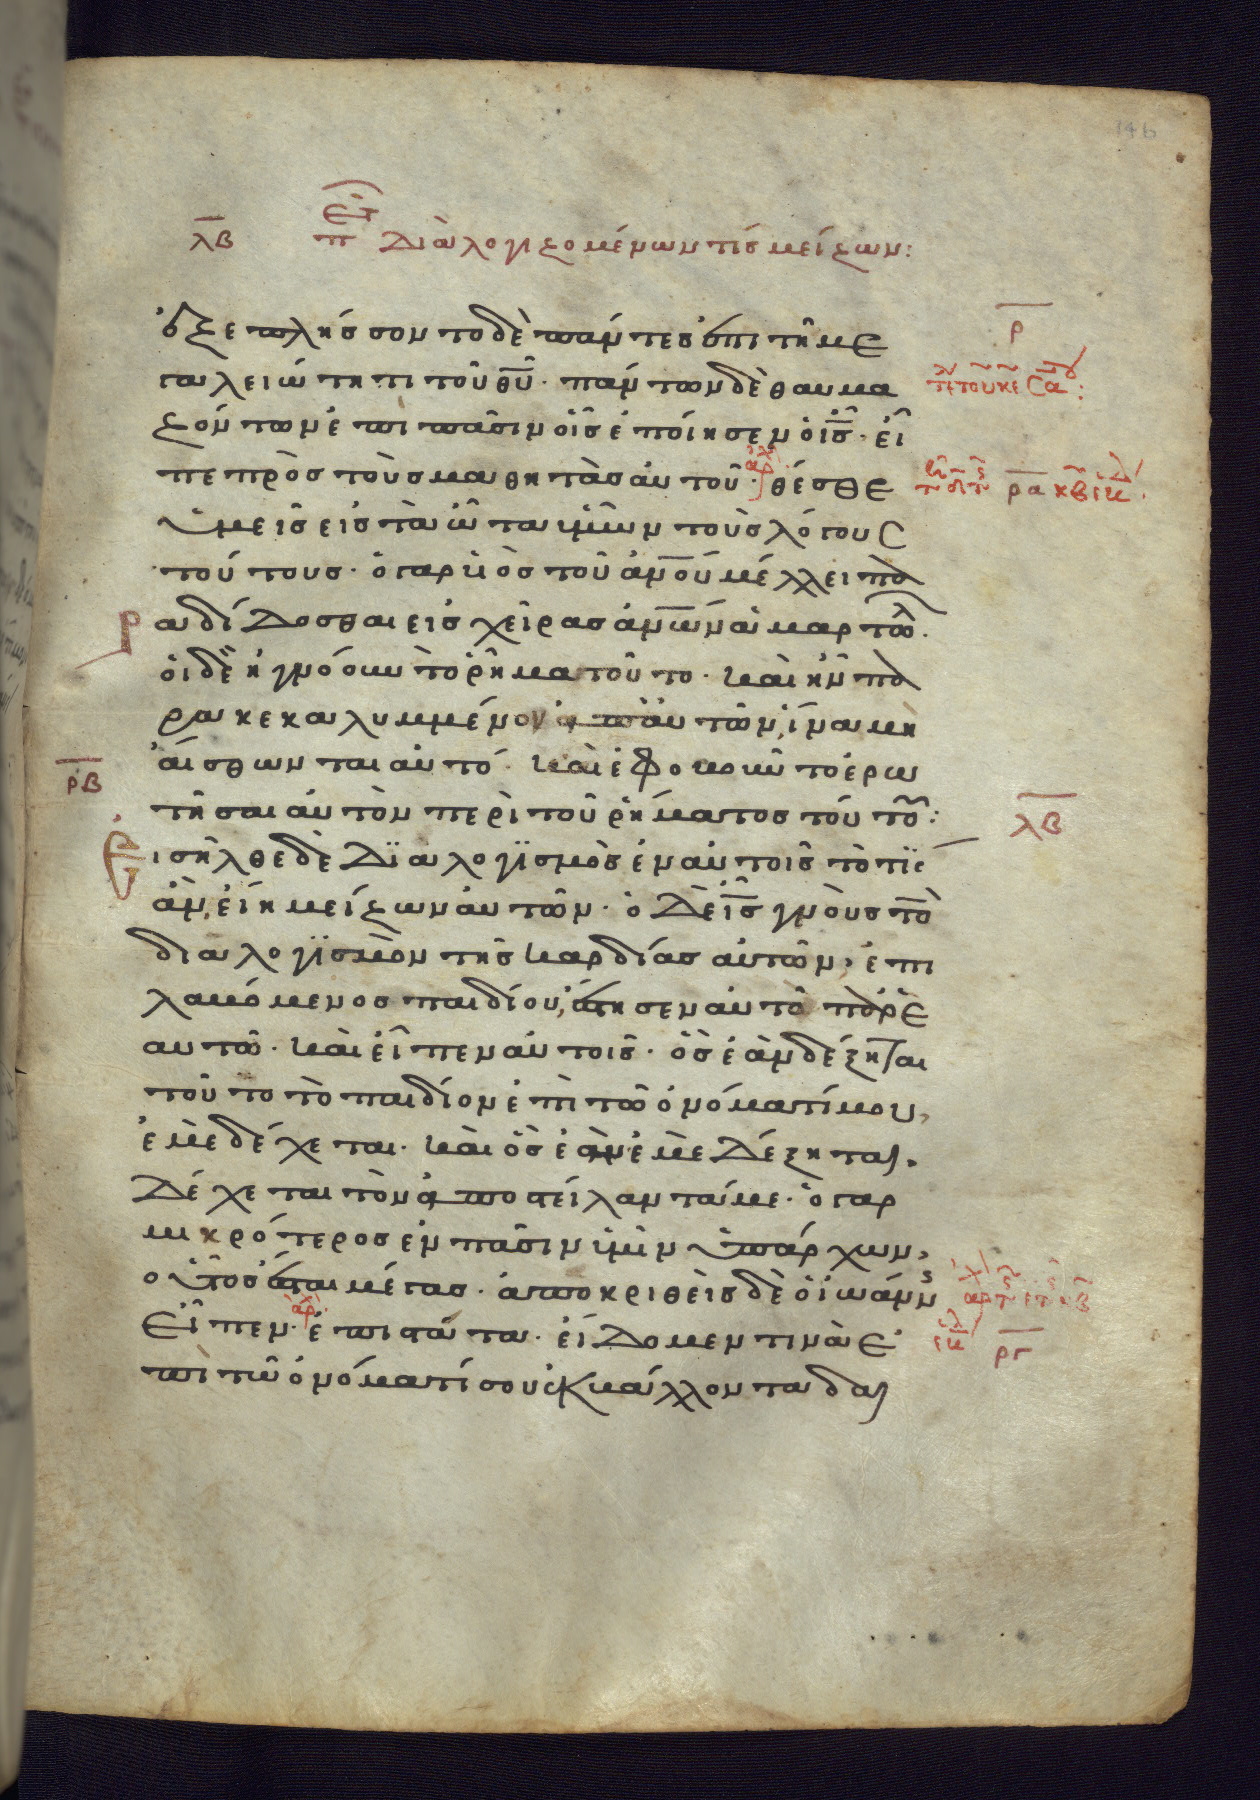 146
λβ περὶ Διαλογιζομένων τίς μείζων:
ἐξεπλήσσοντο δὲ πάντες ἐπὶ τῆ με
γαλειώτητι τοῦ θ̅υ̅. πάντων δὲ θαυμα
ζόντων ἐπὶ πᾶσιν οἷς ἐποίησεν ὁ ι̅ς̅. εἶ
πε πρὸς τοὺς μαθητὰς αὐτοῦ. θέσθε
ὑμεῖς εἰς τὰ ὦτα ὑμῶν τοὺς λόγους
τούτους. ὁ γὰρ υ̅ς̅ τοῦ α̅ν̅ο̅υ̅ μέλλει πα
ραδίδοσθαι εἰς χεῖρας α̅ν̅ω̅ν̅ ἁμαρτωλ.
οἱ δὲ ἠγνόουν τὸ ῥῆμα τοῦτο. καὶ ἦν πα
ρακεκαλυμμένον ἀπ αὐτῶν, ἵνα μὴ
αἴσθωνται αὐτό. καὶ ἐφοβοῦντο ἐρω
τῆσαι αὐτὸν περὶ τοῦ ῥήματος τούτου:
Εισῆλθε δὲ Διαλογισμὸς ἐν αὐτοῖς τὸ τίς
ἂν, εἴη μείζων αὐτῶν. ὁ Δὲ ι̅ς̅ γνοὺς τὸν
διαλογισμὸν τῆς καρδίας αὐτῶν, ἐπι
λαβόμενος παιδίου, ἔστησεν αὐτὸ παρ ἑ
αυτῶ. καὶ εἶπεν αὐτοῖς. ὃς ἐὰν δέξηται
τοῦτο τὸ παιδίον ἐπὶ τῶ ὀνόματί μου,
ἐμὲ δέχεται. καὶ ὃς ἐὰν ἐμὲ Δέξηται.
Δέχεται τὸν ἀποστείλαντά με. ὁ γὰρ
μικρότερος ἐν πᾶσιν ὑμῖν ὑπάρχων,
οὗτος ἔσται μέγας. ἀποκριθεὶς δὲ ὁ ἰωάννης
Εἶπεν. ἐπιστάτα. εἴδομεν τινὰ ἐ
πὶ τῶ ὀνόματί σου ἐκβάλλοντα δαι
ρ
ρα
ρβ
λβ
ργ